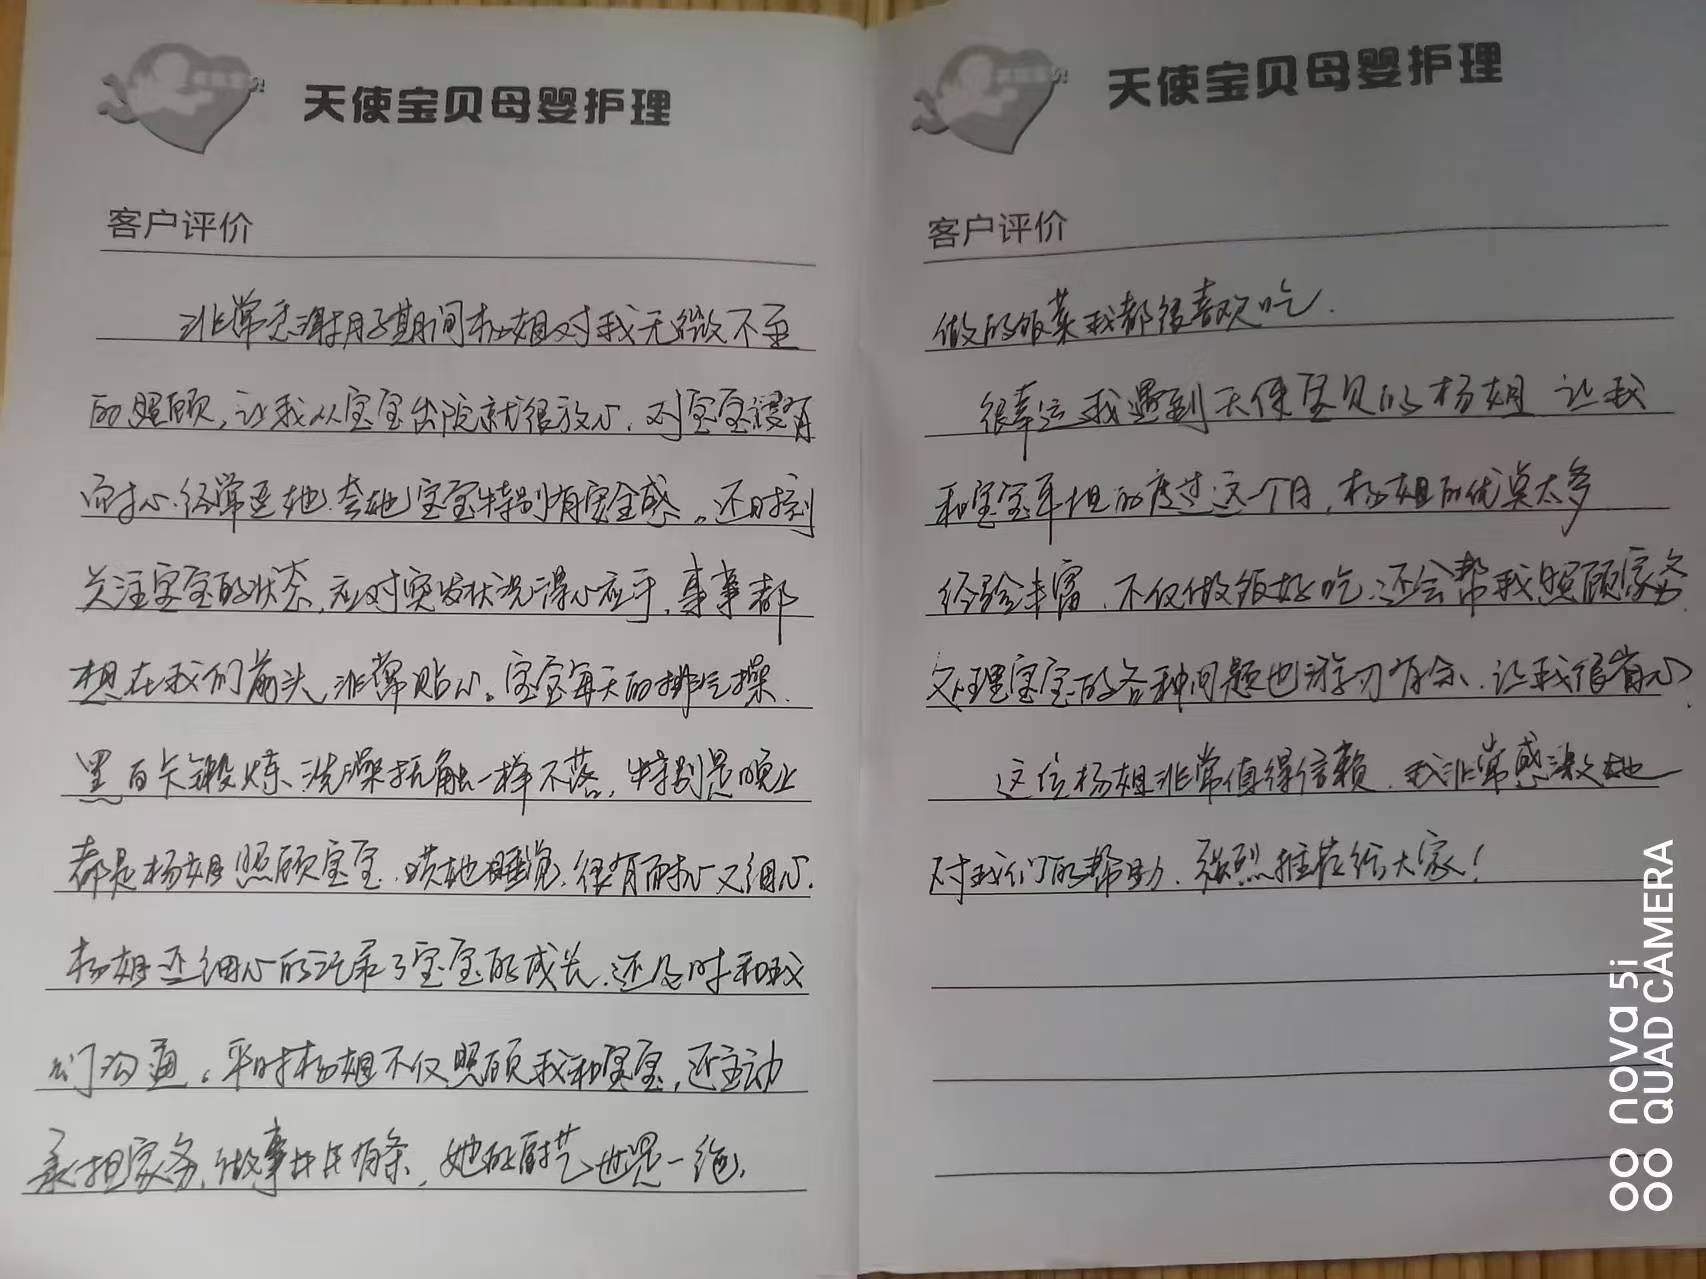 天使宝贝母婴护理
客户评价
非常感谢月子期间杨姐对我无微不至
的照顾,让我从宝宝出院就很放心,对宝宝很有
耐心.经常逗她.夸她,宝宝特别有安全感。还时刻
关注宝宝的状态,应对突发状况得心应手,事事都
想在我们前头,非常贴心。宝宝每天的排气操.
黑白卡锻炼、洗澡抚触一样不落,特别是晚上
都是杨姐照顾宝宝.哄她睡觉,很有耐心又细心.
杨姐还细心的记录了宝宝的成长.还及时和我
们沟通。平时杨姐不仅照顾我和宝宝,还主动
承担家务,做事井井有条,她的厨艺也是一绝,
天使宝贝母婴护理
客户评价
做的饭菜我都很喜欢吃.
很幸运我遇到天使宝贝的杨姐 让我
和宝宝平坦的度过这个月,杨姐的优点太多
经验丰富,不仅做饭好吃,还会帮我照顾家务.
处理宝宝的各种问题也游刃有余,让我很省心.
这位杨姐非常值得信赖,我非常感激她
对我们的帮助,强烈推荐给大家!
nova 5i
QUAD CAMERA